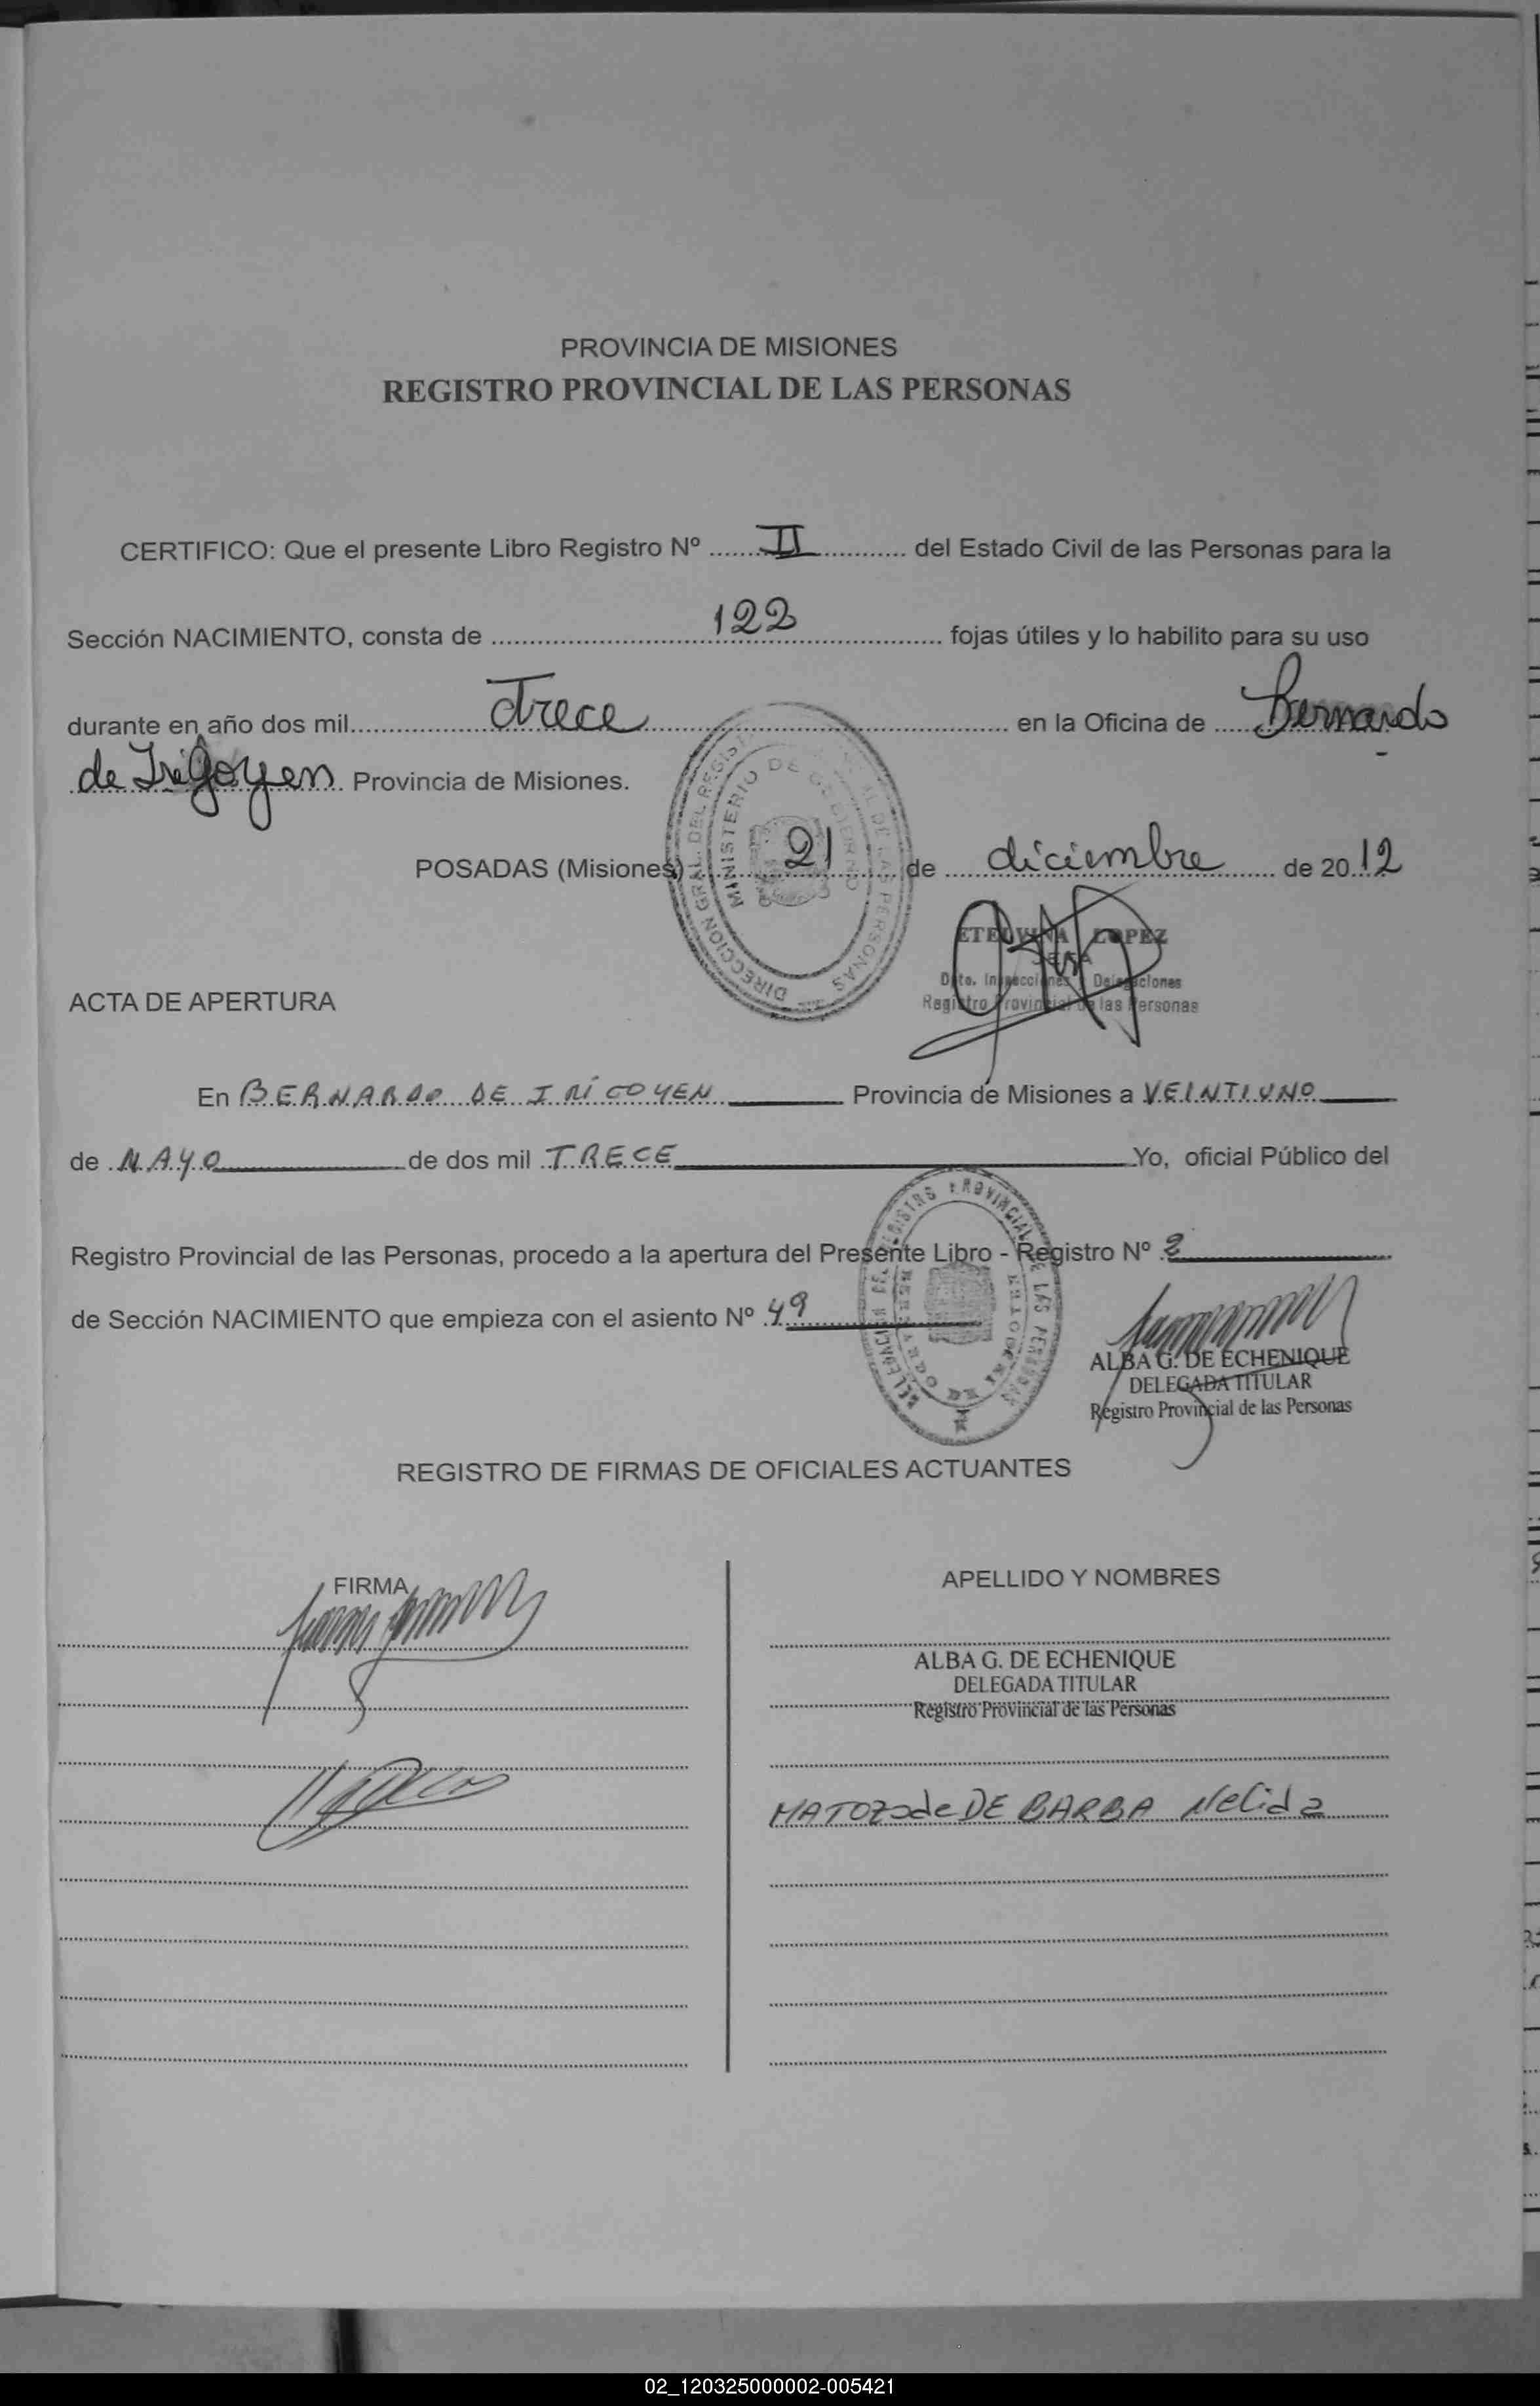 PROVINCIA DE MISIONES
REGISTRO PROVINCIAL DE LAS PERSONAS
CERTIFICO: Que el presente Libro Registro Nº II del Estado Civil de las Personas para la
Sección NACIMIENTO, consta de 122 fojas útiles y lo habilito para su uso
durante en año dos mil Trece en la Oficina de Bernardo
de Irigoyen Provincia de Misiones.
POSADAS (Misiones) 21 de diciembre de 2012
DIRECCION GRAL. DEL REGIST AL DE LAS PERSONAS
MINISTERIO DE GOBIERNO
ETELVINA LOPEZ
JEFA
Dpto. Inspecciones y Delegaciones
Registro Provincial de las Personas
ACTA DE APERTURA
En BERNARDO DE IRÍGOYEN Provincia de Misiones a VEINTIUNO
de MAYO de dos mil TRECE Yo, oficial Público del
Registro Provincial de las Personas, procedo a la apertura del Presente Libro - Registro Nº 2
de Sección NACIMIENTO que empieza con el asiento Nº 49
ALBA G. DE ECHENIQUE
DELEGADA TITULAR
Registro Provincial de las Personas
REGISTRO DE FIRMAS DE OFICIALES ACTUANTES
FIRMA
APELLIDO Y NOMBRES
ALBA G. DE ECHENIQUE
DELEGADA TITULAR
Registro Provincial de las Personas
DE BARBA Nelida
02_120325000002-005421